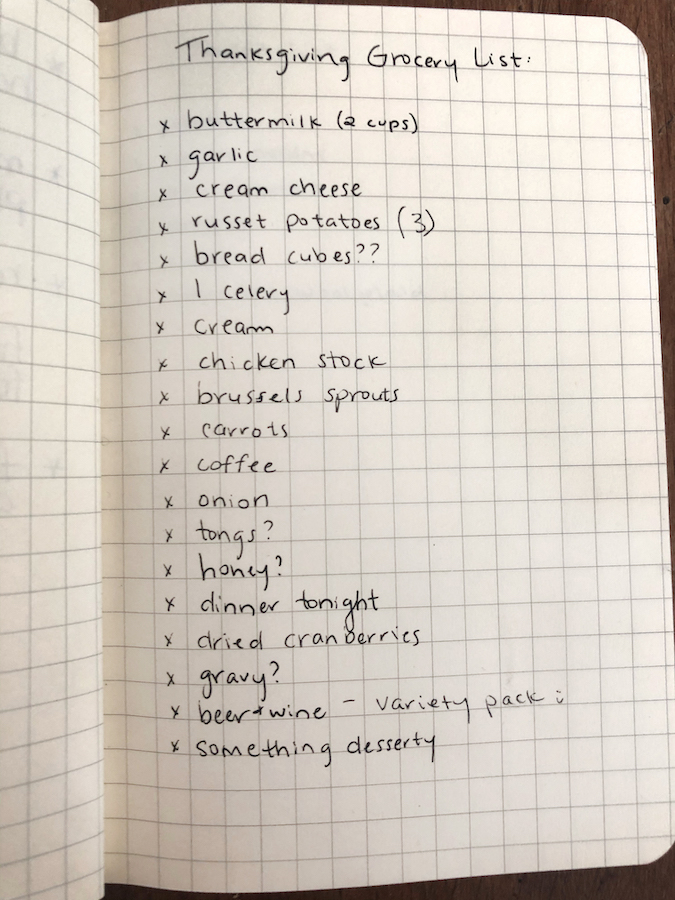 Thanksgiving Grocery List:
x buttermilk (2 cups)
x garlic
x cream cheese
x russet potatoes (3)
x bread cubes??
x 1 celery
x cream
x chicken stock
x brussels sprouts
x carrots
x coffee
x onion
x tongs?
x honey?
x dinner tonight
x dried cranberries
x gravy?
x beer+wine - variety pack :
x something desserty